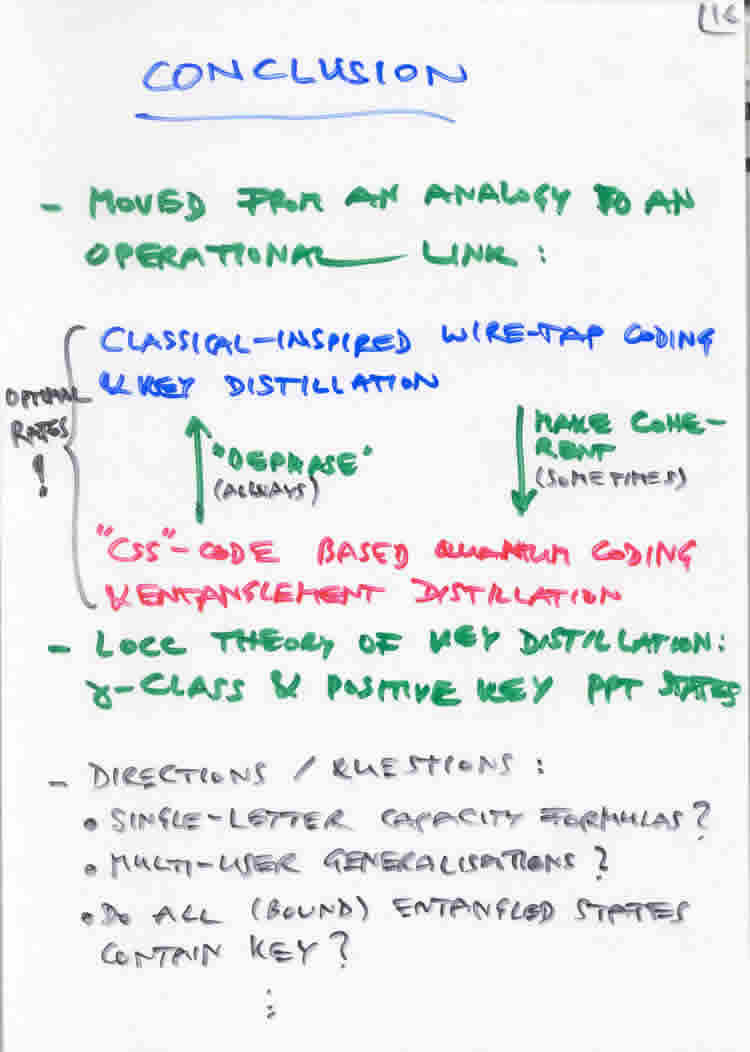 16
CONCLUSION
- MOVED FROM AN ANALOGY TO AN
OPERATIONAL LINK :
CLASSICAL-INSPIRED WIRE-TAP CODING
& KEY DISTILLATION
OPTIMAL
RATES
!
"DEPHASE"
(ALWAYS)
MAKE COHE-
RENT
(SOMETIMES)
"CSS"-CODE BASED QUANTUM CODING
& ENTANGLEMENT DISTILLATION
- LOCC THEORY OF KEY DISTILLATION:
γ-CLASS & POSITIVE KEY PPT STATES
- DIRECTIONS / QUESTIONS :
• SINGLE-LETTER CAPACITY FORMULAS?
• MULTI-USER GENERALISATIONS?
• DO ALL (BOUND) ENTANGLED STATES
CONTAIN KEY?
⋮